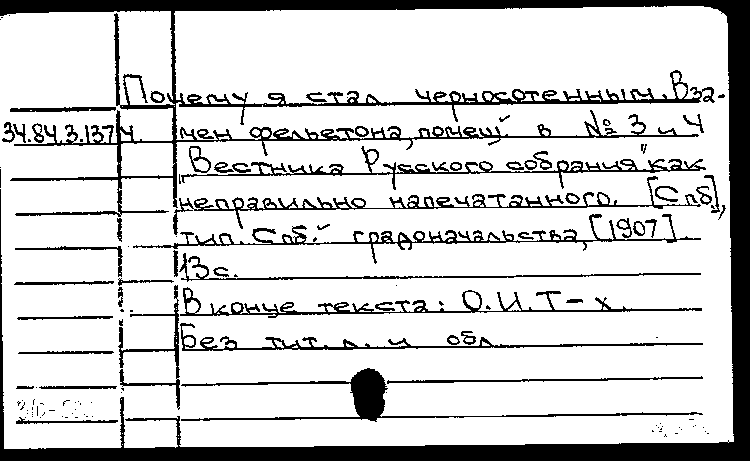 Почему я стал черносотенным. Вза-
34.84.3.1374. мен фельетона, помещ. в №№ 3 и 4
"Вестника Русского собрания" как
неправильно напечатанного. [Спб],
тип. Спб. градоначальства, [1907].
13 с.
В конце текста: О.И.Т-х.
Без тит. л. и обл.